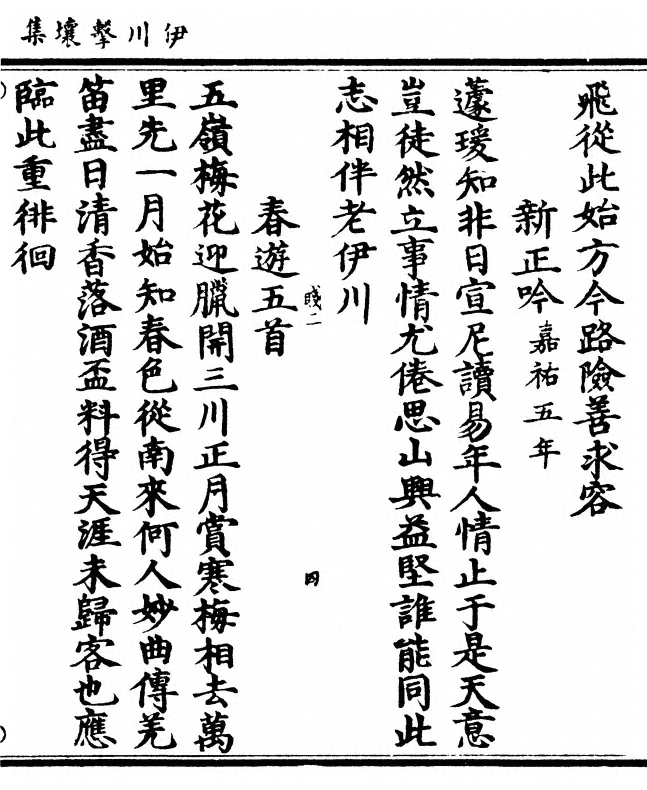 伊川擊壤集
飛從此始方今路險善求容
新正吟嘉祐五年
蘧瑗知非日宣尼讀易年人情止于是天意
豈徒然立事情尤倦思山興益堅誰能同此
志相伴老伊川
春遊五首
五嶺梅花迎臘開三川正月賞寒梅相去萬
里先一月始知春色從南來何人妙曲傳羌
笛盡日清香落酒盃料得天涯未歸客也應
臨此重徘徊